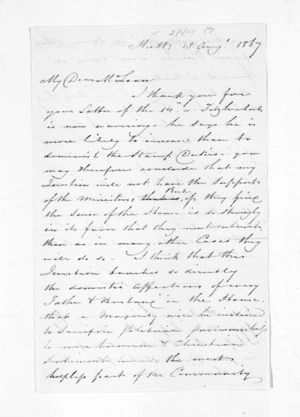 18 Augt 1867
My Dear McLean
I thank you for
your letter of the 14th. Fitzherbert
is now wavering. he says he is
more likely to increase than to
diminish the Stamp Duties. you
may therefore conclude that my
will not have the support
of the Ministers, But if they find
the sense of the House is so strongly
in its favor that they must submit,
then as in many other Cases they
will do so. I think that this
touches so directly
the domestic affections of every
Father & Husband in the House,
that a majority will be inclined
to sacrifice
to & Christian
the most
helpless part of the Community